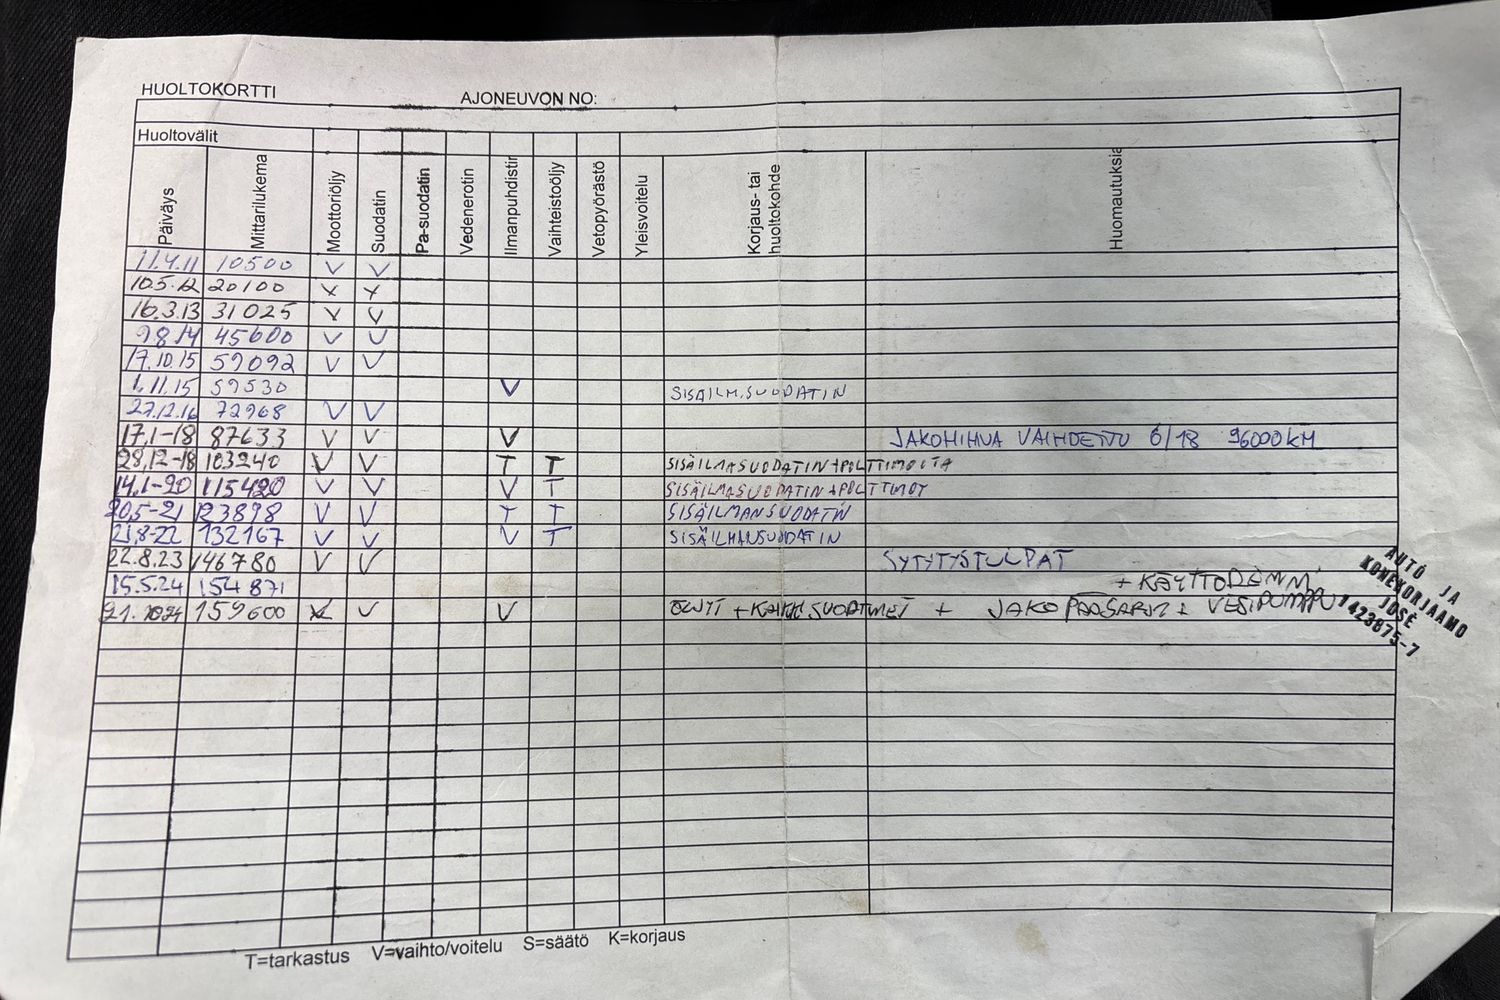 HUOLTOKORTTI
AJONEUVON NO:
Huoltovälit
Päiväys Mittarilukema Moottoriöljy Suodatin Pa-suodatin Vedenerotin Ilmanpuhdistin Vaihteistoöljy Vetopyörästö Yleisvoitelu Korjaus- tai huoltokohde Huomautuksia
11.4.11 10500 V V
10.5.12 20100 V V
16.3.13 31025 V V
9.8.14 45600 V V
17.10.15 59092 V V
1.11.15 59530 V SISÄILM.SUODATIN
27.12.16 72968 V V
17.1-18 87633 V V V JAKOHIHNA VAIHDETTU 6/18 96000KM
28.12-18 103240 V V T T SISÄILMASUODATIN+POLTTIMOITA
14.1-20 115420 V V V T SISÄILMASUODATIN+POLTTIMOT
20.5-21 123898 V V T T SISÄILMANSUODATIN
21.8-22 132167 V V V T SISÄILMANSUODATIN
22.8.23 146780 V V SYTYTYSTULPAT
15.5.24 154871
21.10.24 159600 V V V ÖLJYT + KAIKKI SUODATIMET + JAKOPÄÄSARJA + VESIPUMPPU
+ KÄYTTÖREMMI
AUTO JA
KONEKORJAAMO
JOSÉ
1423875-7
T=tarkastus V=vaihto/voitelu S=säätö K=korjaus